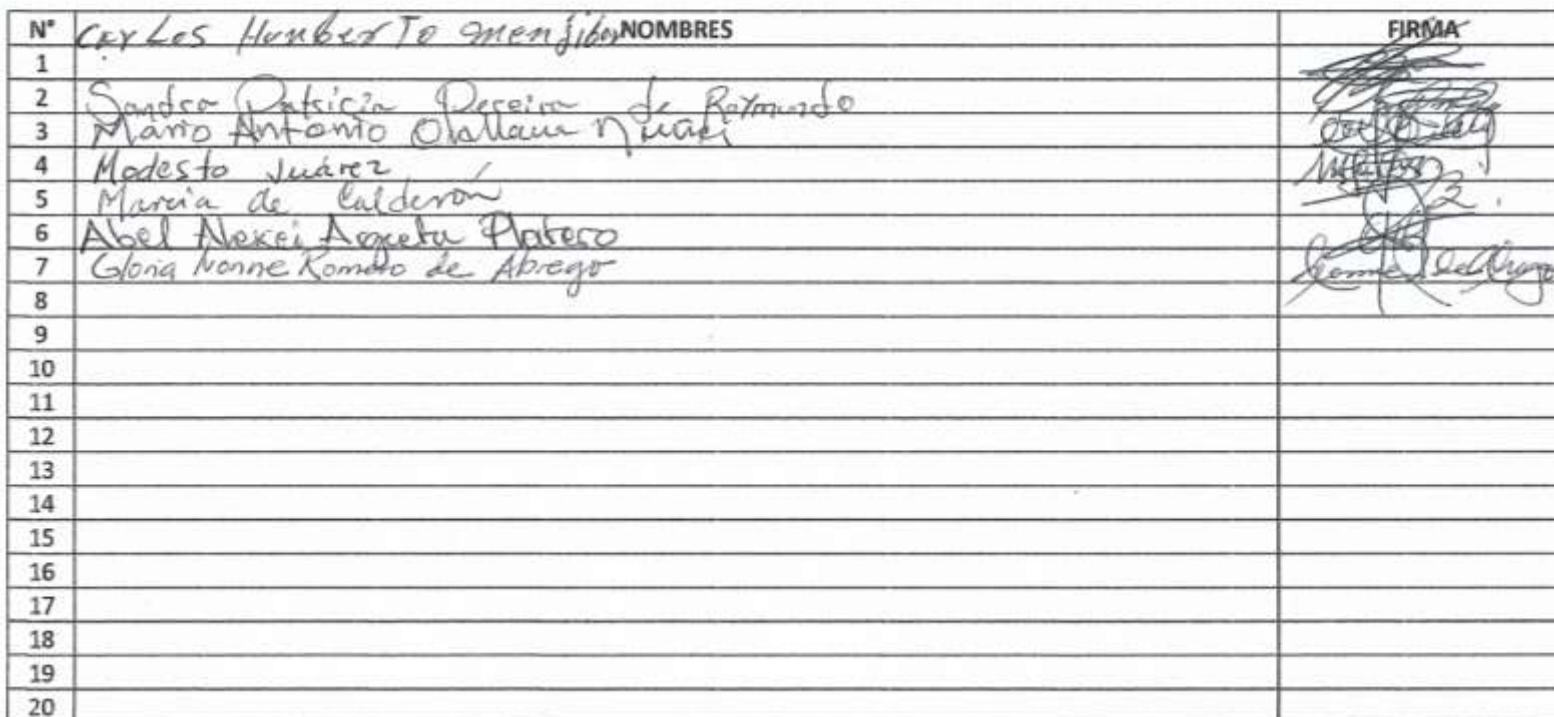 N° Carlos Humberto Menjibar NOMBRES FIRMA
1
2 Sandra Patricia Pereira de Raymundo
3 Mario Antonio
4 Modesto Juárez
5 Marcia de Calderón
6 Abel Alexei Argueta Platero
7 Gloria Ivonne Romero de Abrego
8
9
10
11
12
13
14
15
16
17
18
19
20